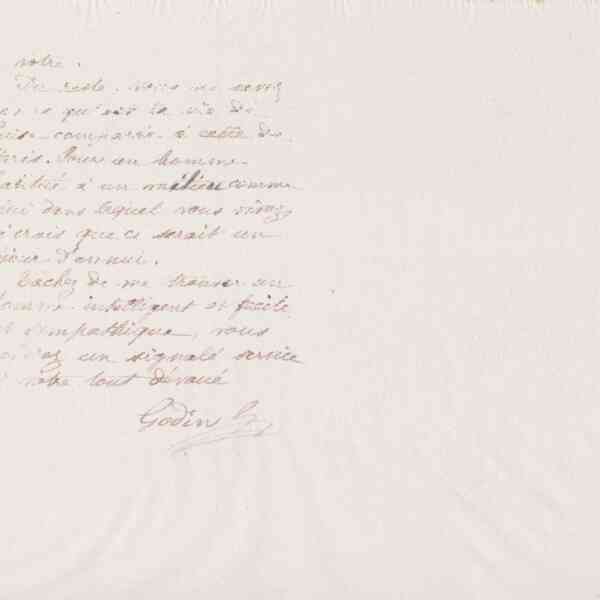 votre.
Du reste, vous ne savez
ce qu'est la vie de
comparée à celle de
Paris. Pour un homme
habitué à un milieu comme
celui dans lequel vous vivez
je crois que ce serait un
séjour d'ennui.
Tachez de me trouver un
homme intelligent et facile
et sympathique, vous
un signalé service
à votre tout dévoué
Godin